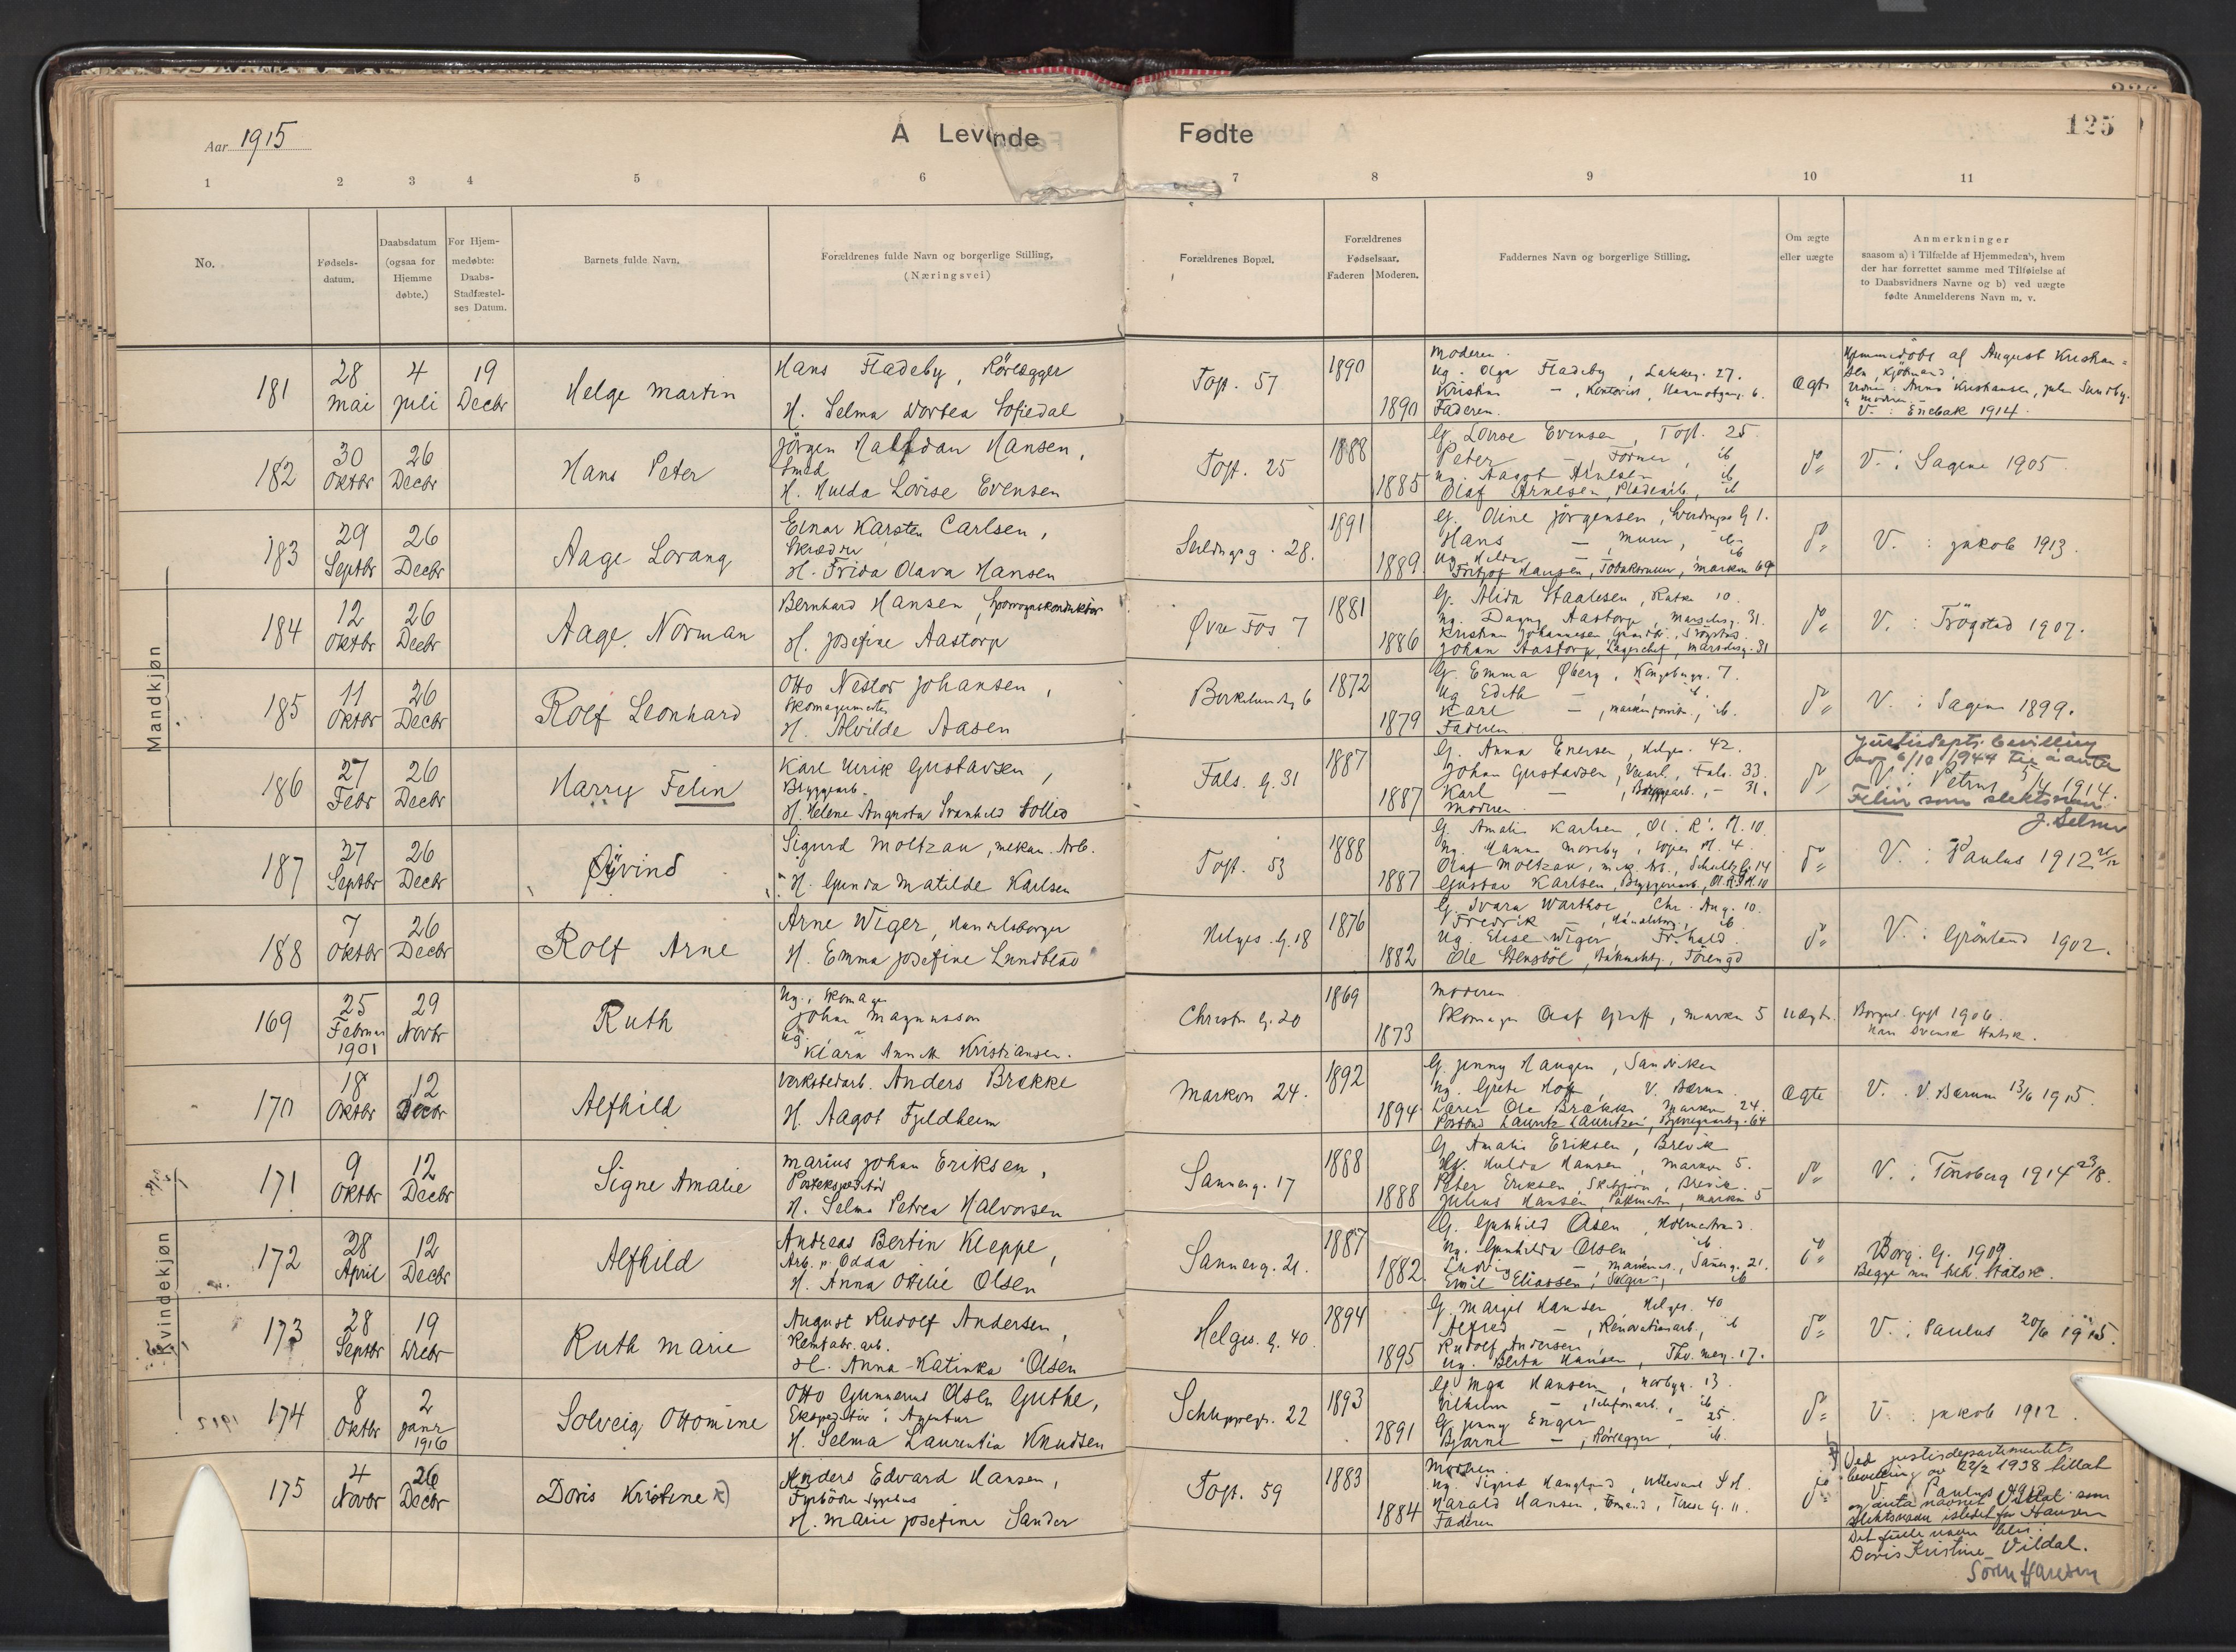 Aar 1915
A Levende
Fødte
125
1 2 3 4 5 6 7 8 9 10 11
No.
Fødsels-
datum.
Daabsdatum
(ogsaa for
Hjemme
døbte.)
For Hjem-
medøbte:
Daabs-
Stadfæstel-
ses Datum.
Barnets fulde Navn.
Forældrenes fulde Navn og borgerlige Stilling.
(Næringsvei)
Forældrenes Bopæl.
Forældrenes
Fødselsaar.
Faderen Moderen.
Faddernes Navn og borgerlige Stilling.
Om ægte
eller uægte
Anmerkninger
saasom a) i Tilfælde af Hjemmedaab, hvem
der har forrettet samme med Tilføielse af
to Daabsvidners Navne og b) ved uægte
fødte Anmelderens Navn m. v.
Mandkjøn
181
28
Mai
4
juli
19
Decbr
Helge Martin
Hans Fladeby, Rörlægger
H. Selma Dortea Sofiedal
Toft. 57
1890
1890
Moderen.
Ug. Olga Fladeby, Lakkeg. 27.
Kristian —, Kontorist, 6.
Faderen.
Ægte
Hjemmedöbt af August Kristian=
sen, Kjöbmand
Anna Kristiansen, Sundby.
Moderen
V. : Enebak 1914.
182
30
Oktbr
26
Decbr
Hans Peter
Jörgen Halfdan Hansen,
Smed
H. Hulda Lovise Evensen
Toft. 25
1888
1885
G. Lovise Evensen, Toft. 25.
Peter —, Former, ib
Ug. Aagot Arnesen ib
Olaf Arnesen, Pladearb., ib
do
V. : Sagene 1905.
183
29
Septbr
26
Decbr
Aage Lorang
Einar Karsten Carlsen,
Skrædder
H. Frida Olava Hansen
Seildugsg. 28.
1891
1889
G. Oline Jörgensen, Sverdrups G 1.
Hans — Murer, ib
Ug. Hilda — ib
Fritjof Hansen, , Marken 69
do
V. : Jakob 1913.
184
12
Oktbr
26
Decbr
Aage Norman
Bernhard Hansen, Sporvognskonduktör
H. Josefine Aastorp
Øvre Fos 7
1881
1886
G. Alida Staalesen, 10.
Ug. Dagny Aastorp, Marselisg. 31.
Kristian Johannesen, Trögstad.
Johan Aastorp, Lagerchef, Marselisg. 31
do
V. : Trögstad 1907.
185
11
Oktbr
26
Decbr
Rolf Leonhard
Otto Nestor Johansen,
Skomagermester
H. Alvilde Aasen
Birkelundg 6
1872
1879
G. Emma Øberg, Kongsbergg. 7.
Ug Edith — ib.
Karl —, ib.
Faderen
do
V. : Sagene 1899.
186
27
Febr
26
Decbr
Harry Felin
Karl Ulrik Gustavsen,
Bryggearb.
H. Helene Augusta Svanhild Sollid
Fals. G. 31
1887
1887
G. Anna Enersen, Helges. 42.
Johan Gustavsen, , Fals. 33.
Karl — , Bryggearb., — 31.
Moderen.
do
Justisdepts. bevilling
av 6/10 1944 til å anta
V. : Petrus 5/4 1914.
Felin som slektsnavn
J. Selmer
187
27
Septbr
26
Decbr
Øyvind
Sigurd Moltzau, mekan. Arb.
H. Gunda Matilde Karlsen
Toft. 53
1888
1887
G. Amalie Karlsen, Ol. R. Pl. 10.
Ug. Hanna Moseby, Pl. 4.
Olaf Moltzau, mek. Arb., Schultz G. 14
Gustav Karlsen, Bryggeriarb., Ol. R. Pl. 10
do
V. : Paulus 1912 21/12
188
7
Oktbr
26
Decbr
Rolf Arne
Arne Wiger, Handelsborger
H. Emma Josefine Lundblad
Helges. G. 18
1876
1882
G. Svara Warthoe, Chr. Aug. 10.
Fredrik —, Handelsborg., ib
Ug. Elise Wiger, Fr.hald.
Ole Stensböl, , Törengd
do
V. : Grönland 1902.
Kvindekjøn
169
25
Februar
1901
29
Novbr
Ruth
Ug., Skomager
Johan Magnusson
Ug.
Klara Annette Kristiansen.
Christ. G. 20
1869
1873
Moderen
Skomager Olaf Graff, Marken 5
Uægte.
Borgerl. Gift 1906.
Han Svensk Statsk.
170
18
Oktbr
12
Decbr
Alfhild
Verkstedarb. Anders Brække
H. Aagot Fjeldheim
Marken 24.
1892
1894
G. Jenny Haugen, Sandviken
Ug. Grete Hoff, V. Bærum
Lærer Ole Brække, Marken 24.
Postbud Lauritz Lauritzen, 64
Ægte
V. : V. Bærum 13/6 1915.
171
9
Oktbr
12
Decbr
Signe Amalie
Marius Johan Eriksen,
Postekspeditör
H. Selma Petrea Halvorsen
Sannerg. 17
1888
1888
G. Amalie Eriksen, Brevik
Ug. Hulda Hansen, Marken 5.
Peter Eriksen, , Brevik.
Julius Hansen, , Marken 5
do
V. : Tönsberg 1914 23/8.
172
28
April
12
Decbr
Alfhild
Andreas Bertin Kleppe,
Arb. p. Odda
H. Anna Otilie Olsen
Sannerg. 21.
1887
1882
G. Gunhild Olsen, Holmestrand.
Ug. Gunhilda Olsen, ib
Ludvig —, , Sannerg. 21.
Emil Eliassen, Selger, ib
do
Borg. G. 1909.
Begge Statsk.
173
28
Septbr
19
Decbr
Ruth Marie
August Rudolf Andersen,
Remfabr. arb.
H. Anna Katinka Olsen
Helges. G. 40.
1894
1895
G. Margit Hansen, Helges. 40
Alfred —, Renovationsarb., ib
Rudolf Andersen
Ug. Berta Hansen, Thv. Mey. 17.
do
V. : Paulus 20/6 1915.
174
8
Oktbr
2
Janr
1916
Solveig Ottomine
Otto Gunnerus Olsen Guthe,
Ekspeditör i Agentur
H. Selma Laurentia Knudsen
Schleppegr. 22
1893
1891
G. Inga Hansen, Norbyg. 13.
Vilhelm —, Telefonarb., ib
G. Jenny Enger — 25.
Bjarne —, Rörlegger, ib.
do
V. : Jakob 1912.
175
4
Novbr
26
Decbr
Doris Kristine x)
Anders Edvard Hansen,
Fyrböder
H. Marie Josefine Sander
Toft. 59
1883
1884
Moderen.
Ug. Sigrid Haugland, Ullevaal S H.
Harald Hansen, Formand, G. 11.
Faderen
do
x) Ved justisdepartementets
bevilling av 22/2 1938 tillat
V. : Paulus
å anta navnet Vildal som
slektsnavn istedet for Hansen
Det fulle navn blir:
Doris Kristine Vildal.
Sören Hansen